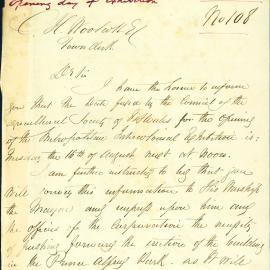 Opening day of Exhibition
No 108
C H Woolcott Esq
Town Clerk
Dr Sir
I have the honor to inform
you that the date fixed by the Council of the
Agricultural Society of for the opening
of the Metropolitan Intercolonial Exhibition is
the 16th of August next at noon.
I am further instructed to beg that you
will convey this information to His Worship
the Mayor and impress upon him and
the officers of the Corporation the necessity
of pushing forward the erection of the building
in the Prince Alfred Park as it will